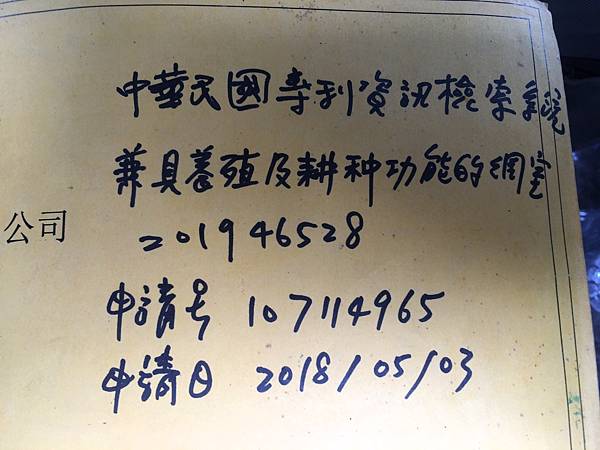 中華民國專利資訊檢索系統
兼具養殖及耕种功能的網室
公司
201946528
申請号 107114965
申請日 2018/05/03